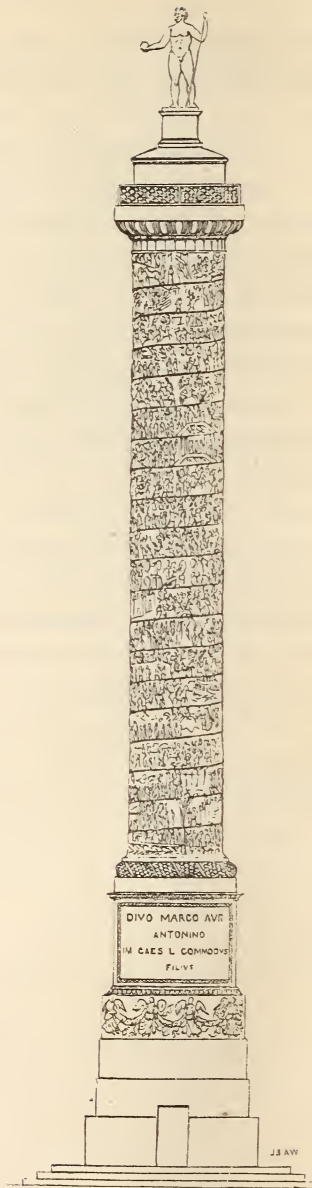 DIVO MARCO AVR
ANTONINO
IM CAES L COMMODVS
FILIVS
J.B.A.W